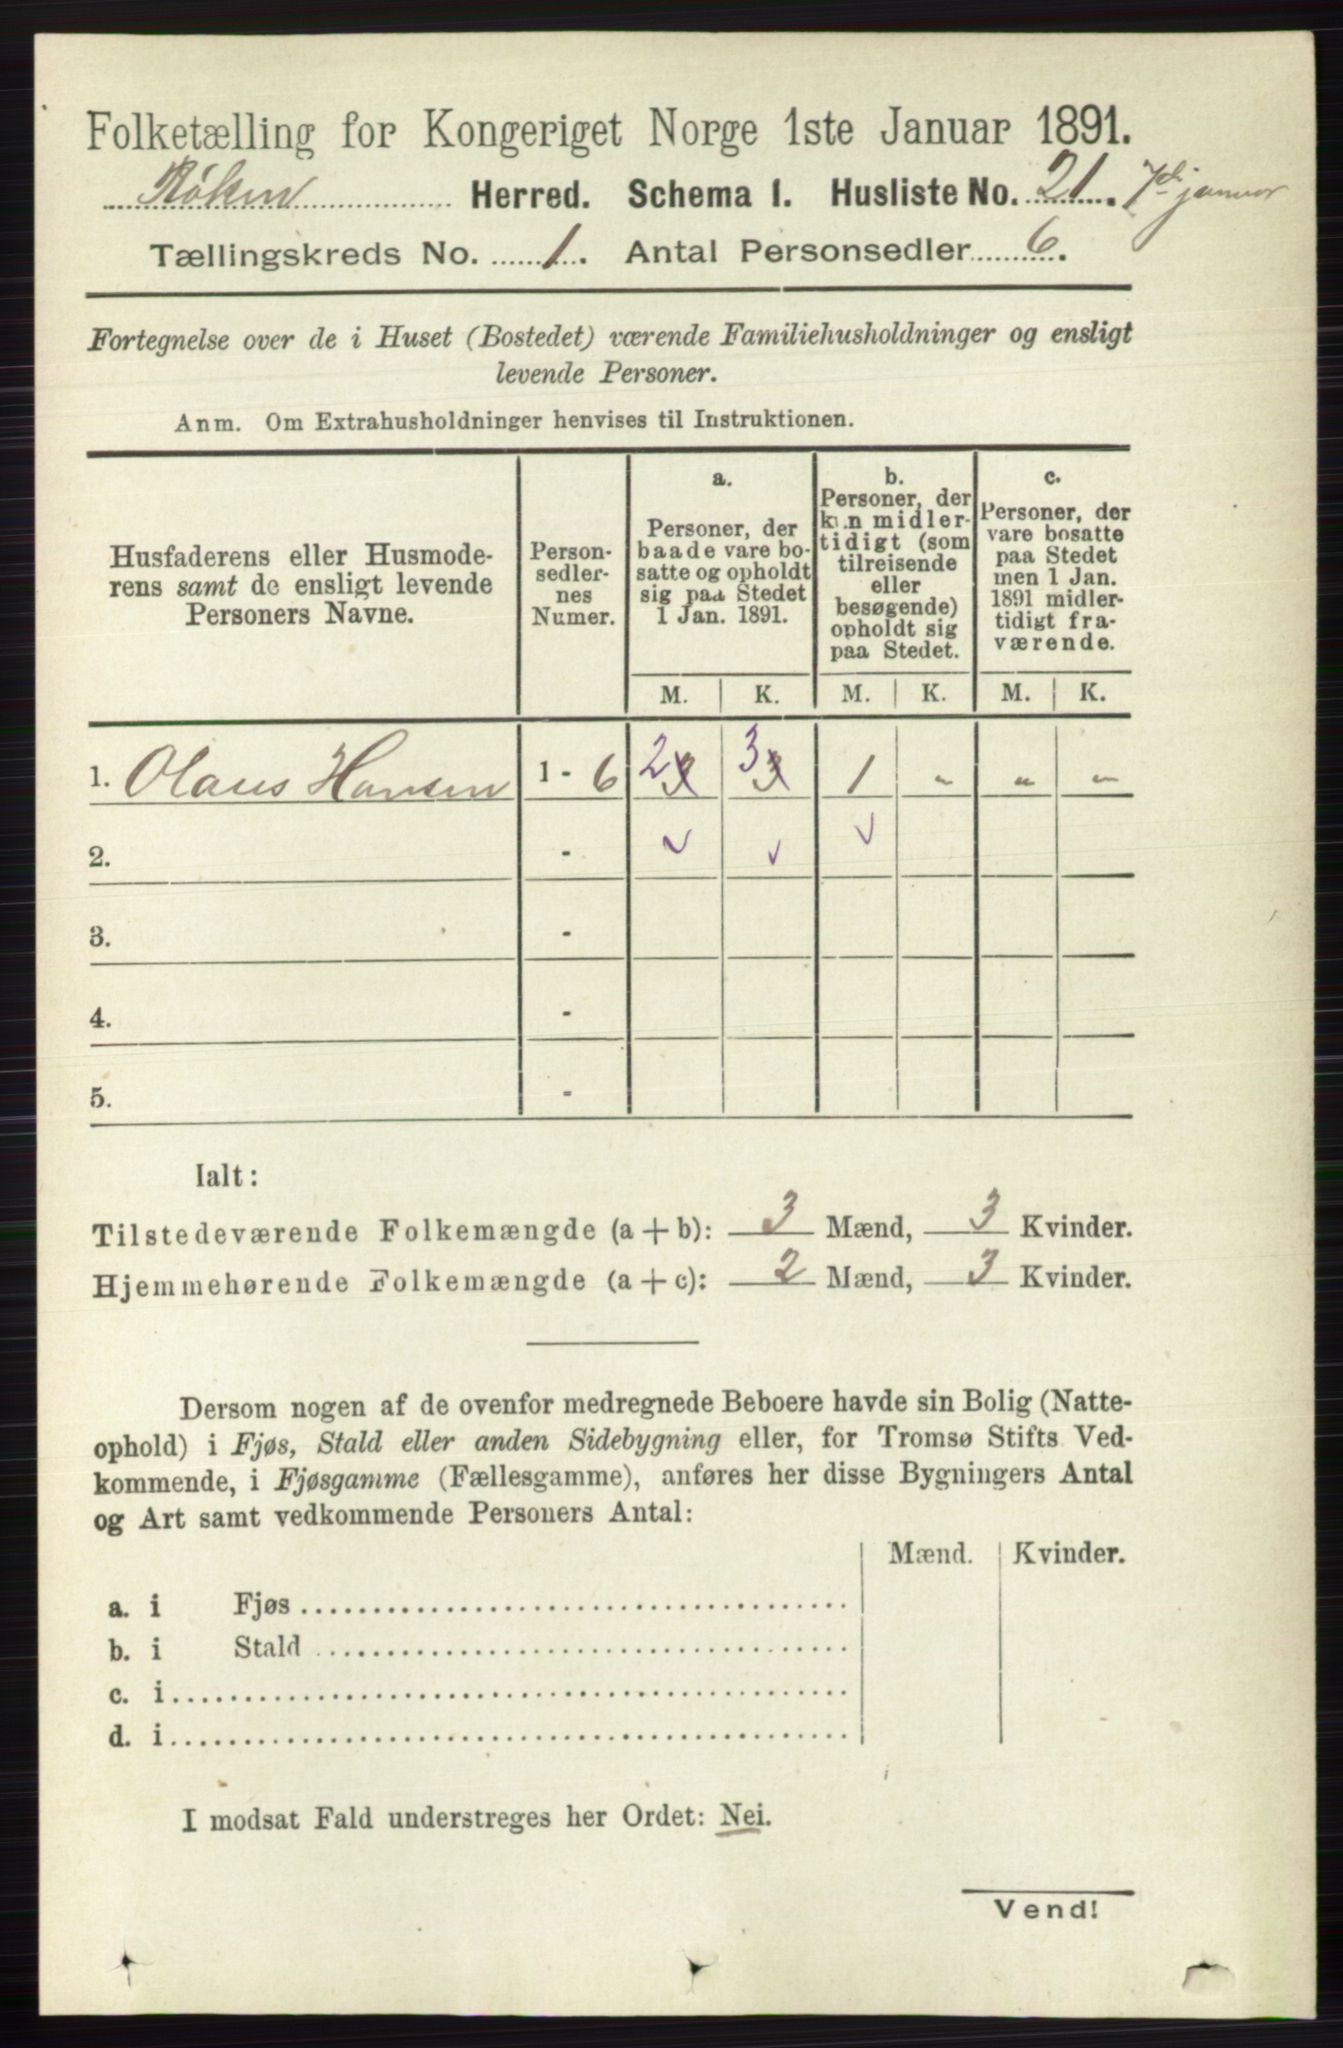 Folketælling for Kongeriget Norge 1ste Januar 1891.
Røken Herred. Schema I. Husliste No. 21. 7de januar
Tællingskreds No. 1. Antal Personsedler 6.
Fortegnelse over de i Huset (Bostedet) værende Familiehusholdninger og ensligt
levende Personer.
Anm. Om Extrahusholdninger henvises til Instruktionen.
Husfaderens eller Husmode-
rens samt de ensligt levende
Personers Navne.
Person-
sedler-
nes
Numer.
a.
Personer, der
baade vare bo-
satte og opholdt
sig paa Stedet
1 Jan. 1891.
b.
Personer, der
kun midler-
tidigt (som
tilreisende
eller
besøgende)
opholdt sig
paa Stedet.
c.
Personer, der
vare bosatte
paa Stedet
men 1 Jan.
1891 midler-
tidigt fra-
værende.
M. K. M. K. M. K.
1. Olaus Hansen 1 - 6 2 3 1 " " "
2. - ✓ ✓ ✓
3. -
4. -
5. -
Ialt:
Tilstedeværende Folkemængde (a + b): 3 Mænd, 3 Kvinder.
Hjemmehørende Folkemængde (a + c): 2 Mænd, 3 Kvinder.
Dersom nogen af de ovenfor medregnede Beboere havde sin Bolig (Natte-
ophold) i Fjøs, Stald eller anden Sidebygning eller, for Tromsø Stifts Ved-
kommende, i Fjøsgamme (Fællesgamme), anføres her disse Bygningers Antal
og Art samt vedkommende Personers Antal:
Mænd. Kvinder.
a. i Fjøs
b. i Stald
c. i
d. i
I modsat Fald understreges her Ordet: Nei.
Vend!